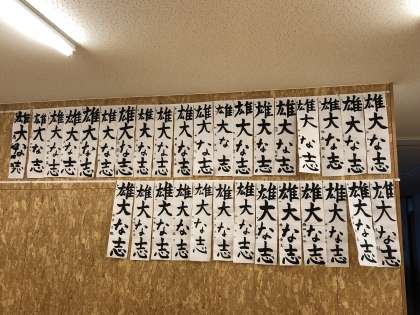 雄大な志
雄大な志
雄大な志
雄大な志
雄大な志
雄大な志
雄大な志
雄大な志
雄大な志
雄大な志
雄大な志
雄大な志
雄大な志
雄大な志
雄大な志
雄大な志
雄大な志
雄大な志
雄大な志
雄大な志
雄大な志
雄大な志
雄大な志
雄大な志
雄大な志
雄大な志
雄大な志
雄大な志
雄大な志
雄大な志
雄大な志
雄大な志